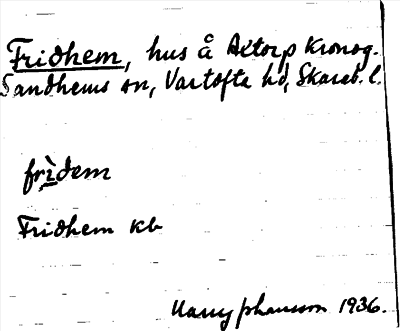 Fridhem, hus å Aetorp Kronog.
Sandhems sn, Vartofta hd, Skarab. l.
frìdem
Fridhem kb
Harry Johansson 1936.